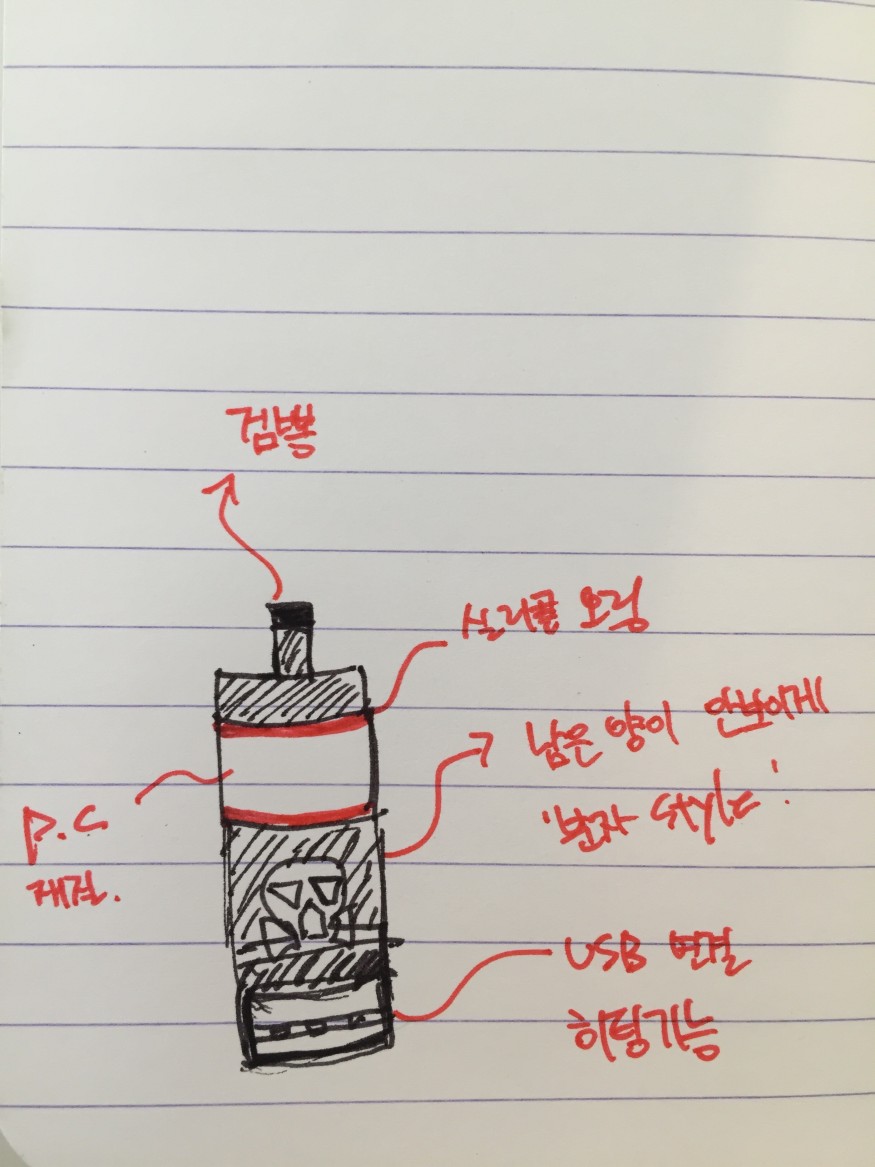 검뽕
실리콜 오링
남은 양이 안보이게
'분자 style'.
P.C
재질.
USB 연결
히팅기능